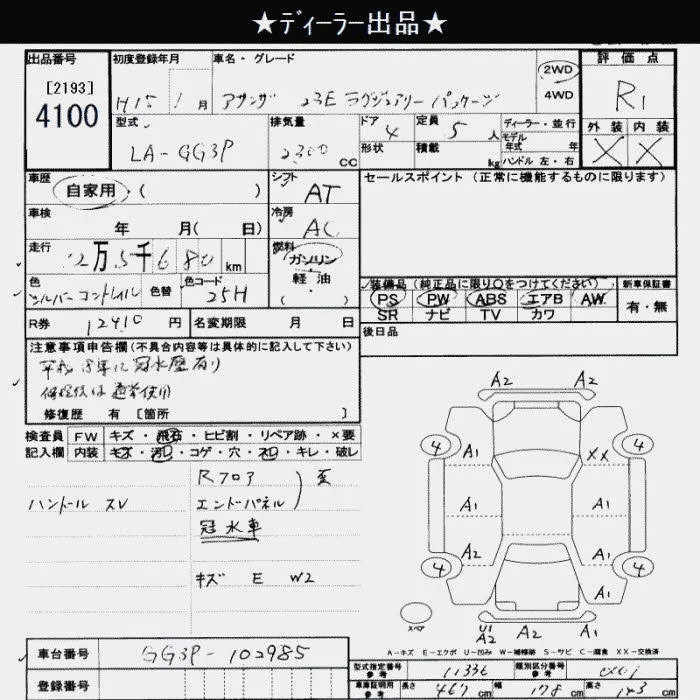 ★ディーラー出品★
出品番号
[2193]
4100
初度登録年月
H15 1 月
車名・グレード
アテンザ 23E ラグジュアリーパッケージ
2WD
4WD
評価点
R1
外装 内装
X X
型式
LA-GG3P
排気量
2300 CC
ドア
4
形状
定員
5 人
積載
kg
ディーラー・並行
モデル
年式 年
ハンドル 左・右
車歴
自家用 ( )
シフト
AT
セールスポイント(正常に機能するものに限ります)
車検
年 月( 日)
冷房
AC
走行
12万5千680 km
燃料
ガソリン
軽油
( )
色
シルバー
色替
色コード
25H
装備品(純正品に限り○をつけてください)
PS PW ABS エアB AW
SR ナビ TV カワ
新車保証書
有・無
R券 12410 円
名変期限 月 日
後日品
注意事項申告欄(不具合内容等は具体的に記入して下さい)
平成18年に冠水歴有り
修復後は通常使用
修復歴 有 [箇所 ]
検査員
記入欄
FW キズ・飛石・ヒビ割・リペア跡・×要
内装 キズ・汚レ・コゲ・穴・スレ・キレ・破レ
ハンドル スレ
Rフロア
エンドパネル
冠水車
キズ E W2
A2 A2
4 A1 XX 4
A1 A1
A2 A1
4 4
A1
スペア
U1
A2 A2 A1
A-キズ E-エクボ U-凹み W-補修跡 S-サビ C-腐食 XX-交換済
車台番号 GG3P-102985
登録番号
型式指定番号
参考
11336
類別区分番号
参考
車庫証明用
参考
長さ 467 cm
幅 178 cm
高さ 143 cm